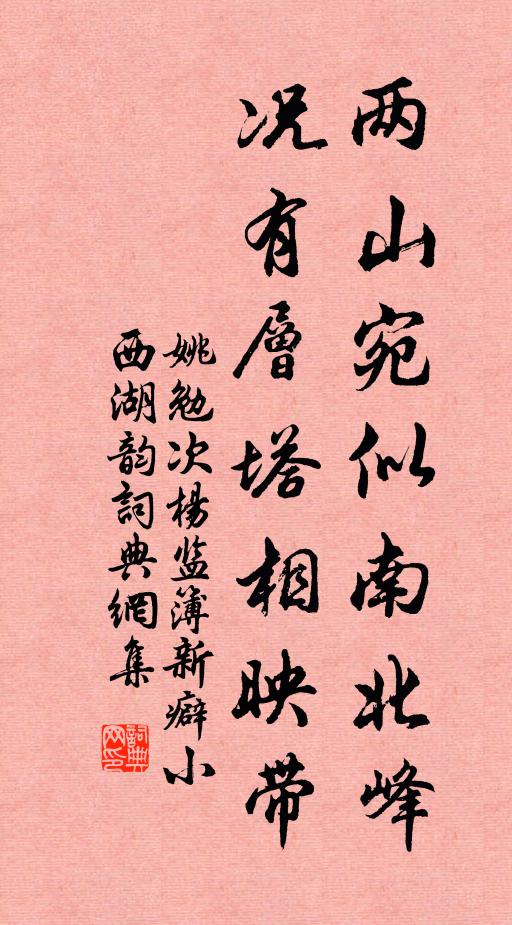 两山宛似南北峰
况有層塔相映带
姚勉次楊监簿新癖小
西湖韵詞典網集
詞典
网印